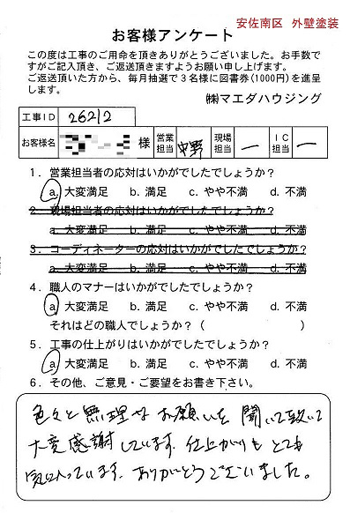 安佐南区 外壁塗装
お客様アンケート
この度は工事のご用命を頂きありがとうございました。お手数で
すがご記入頂き、ご返送頂きますようお願い申し上げます。
ご返送頂いた方から、毎月抽選で3名様に図書券(1000円)を進呈
します。
㈱マエダハウジング
工事ID 26212
お客様名 様 営業担当 中野 現場担当 ー IC担当 ー
1．営業担当者の応対はいかがでしたでしょうか？
a. 大変満足 b. 満足 c. やや不満 d. 不満
2．現場担当者の応対はいかがでしたでしょうか？
a. 大変満足 b. 満足 c. やや不満 d. 不満
3．コーディネーターの応対はいかがでしたでしょうか？
a. 大変満足 b. 満足 c. やや不満 d. 不満
4．職人のマナーはいかがでしたでしょうか？
a. 大変満足 b. 満足 c. やや不満 d. 不満
それはどの職人でしょうか？（ ）
5．工事の仕上がりはいかがでしたでしょうか？
a. 大変満足 b. 満足 c. やや不満 d. 不満
6．その他、ご意見・ご要望をお書き下さい。
色々と無理なお願いを聞いて頂いて
大変感謝しています。仕上がりもとても
気に入っています。ありがとうございました。